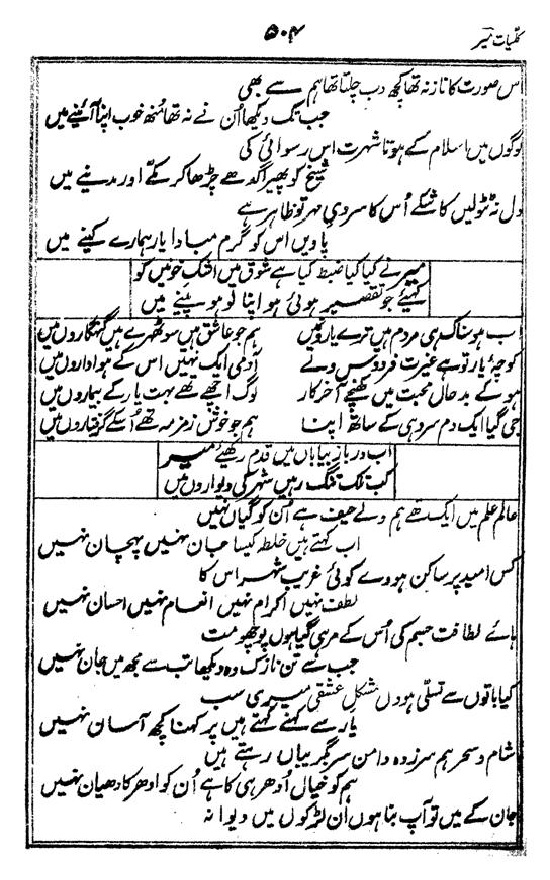 کلیات میر
۵۰۴
اس صورت کا ناز نہ تھا کچھ دب چلتا تھا ہم سے بھی
جب تک دیکھا اُن نے نہ تھا منھ خوب اپنا آئینے میں
لوگوں میں اسلام کے ہوتا شہرت اس رسوائی کی
شیخ کو پھیرا گدھے چڑھا کر مکّے اور مدینے میں
دل نہ ٹٹولیں کاشکے اُس کا سردیِ مہر تو ظاہر ہے
پاویں اس کو گرم مبادا یار ہمارے کینے میں
میر نے کیا کیا ضبط کیا ہے شوق میں اشکِ خونیں کو
کہیے جو تقصیر ہوئی ہو اپنا لوہو پینے میں
اب ہوسناک ہی مردم ہیں ترے یاروں میں
ہم جو عاشق ہیں سو ٹھہرے ہیں گنہگاروں میں
کوچۂ یار تو ہے غیرتِ فردوس ولے
آدمی ایک نہیں اس کے ہواداروں میں
ہو کے بدحال محبت میں کھنچے آخر کار
لوگ اچھے تھے بہت یار کے بیماروں میں
جی گیا ایک دم سرد ہی کے ساتھ اپنا
ہم جو خوش زمزمہ تھے اُسکے گرفتاروں میں
اب در بازِ بیاباں میں قدم رکھیے میر
کب تلک تنگ رہیں شہر کی دیواروں میں
عالم علم میں ایک تھے ہم وے حیف ہے اُن کو گیان نہیں
اب کہتے ہیں خلطہ کیسا جان نہیں پہچان نہیں
کس امید پر ساکن ہووے کوئی غریب شہر اس کا
لطف نہیں اکرام نہیں انعام نہیں احسان نہیں
ہائے لطافت جسم کی اُس کے مر ہی گیا ہوں پوچھو مت
جب سے تنِ نازک وہ دیکھا تب سے مجھ میں جان نہیں
کیا باتوں سے تسلّی ہو دل مشکلِ عشقی میری سب
یار سے کہنے کہتے ہیں پر کہنا کچھ آسان نہیں
شام و سحر ہم سرزدہ دامن سر بگریباں رہتے ہیں
ہم کو خیال اُدھر ہی کا ہے اُن کو ادھر کا دھیان نہیں
جان کے میں تو آپ بنا ہوں ان لڑکوں میں دیوانہ